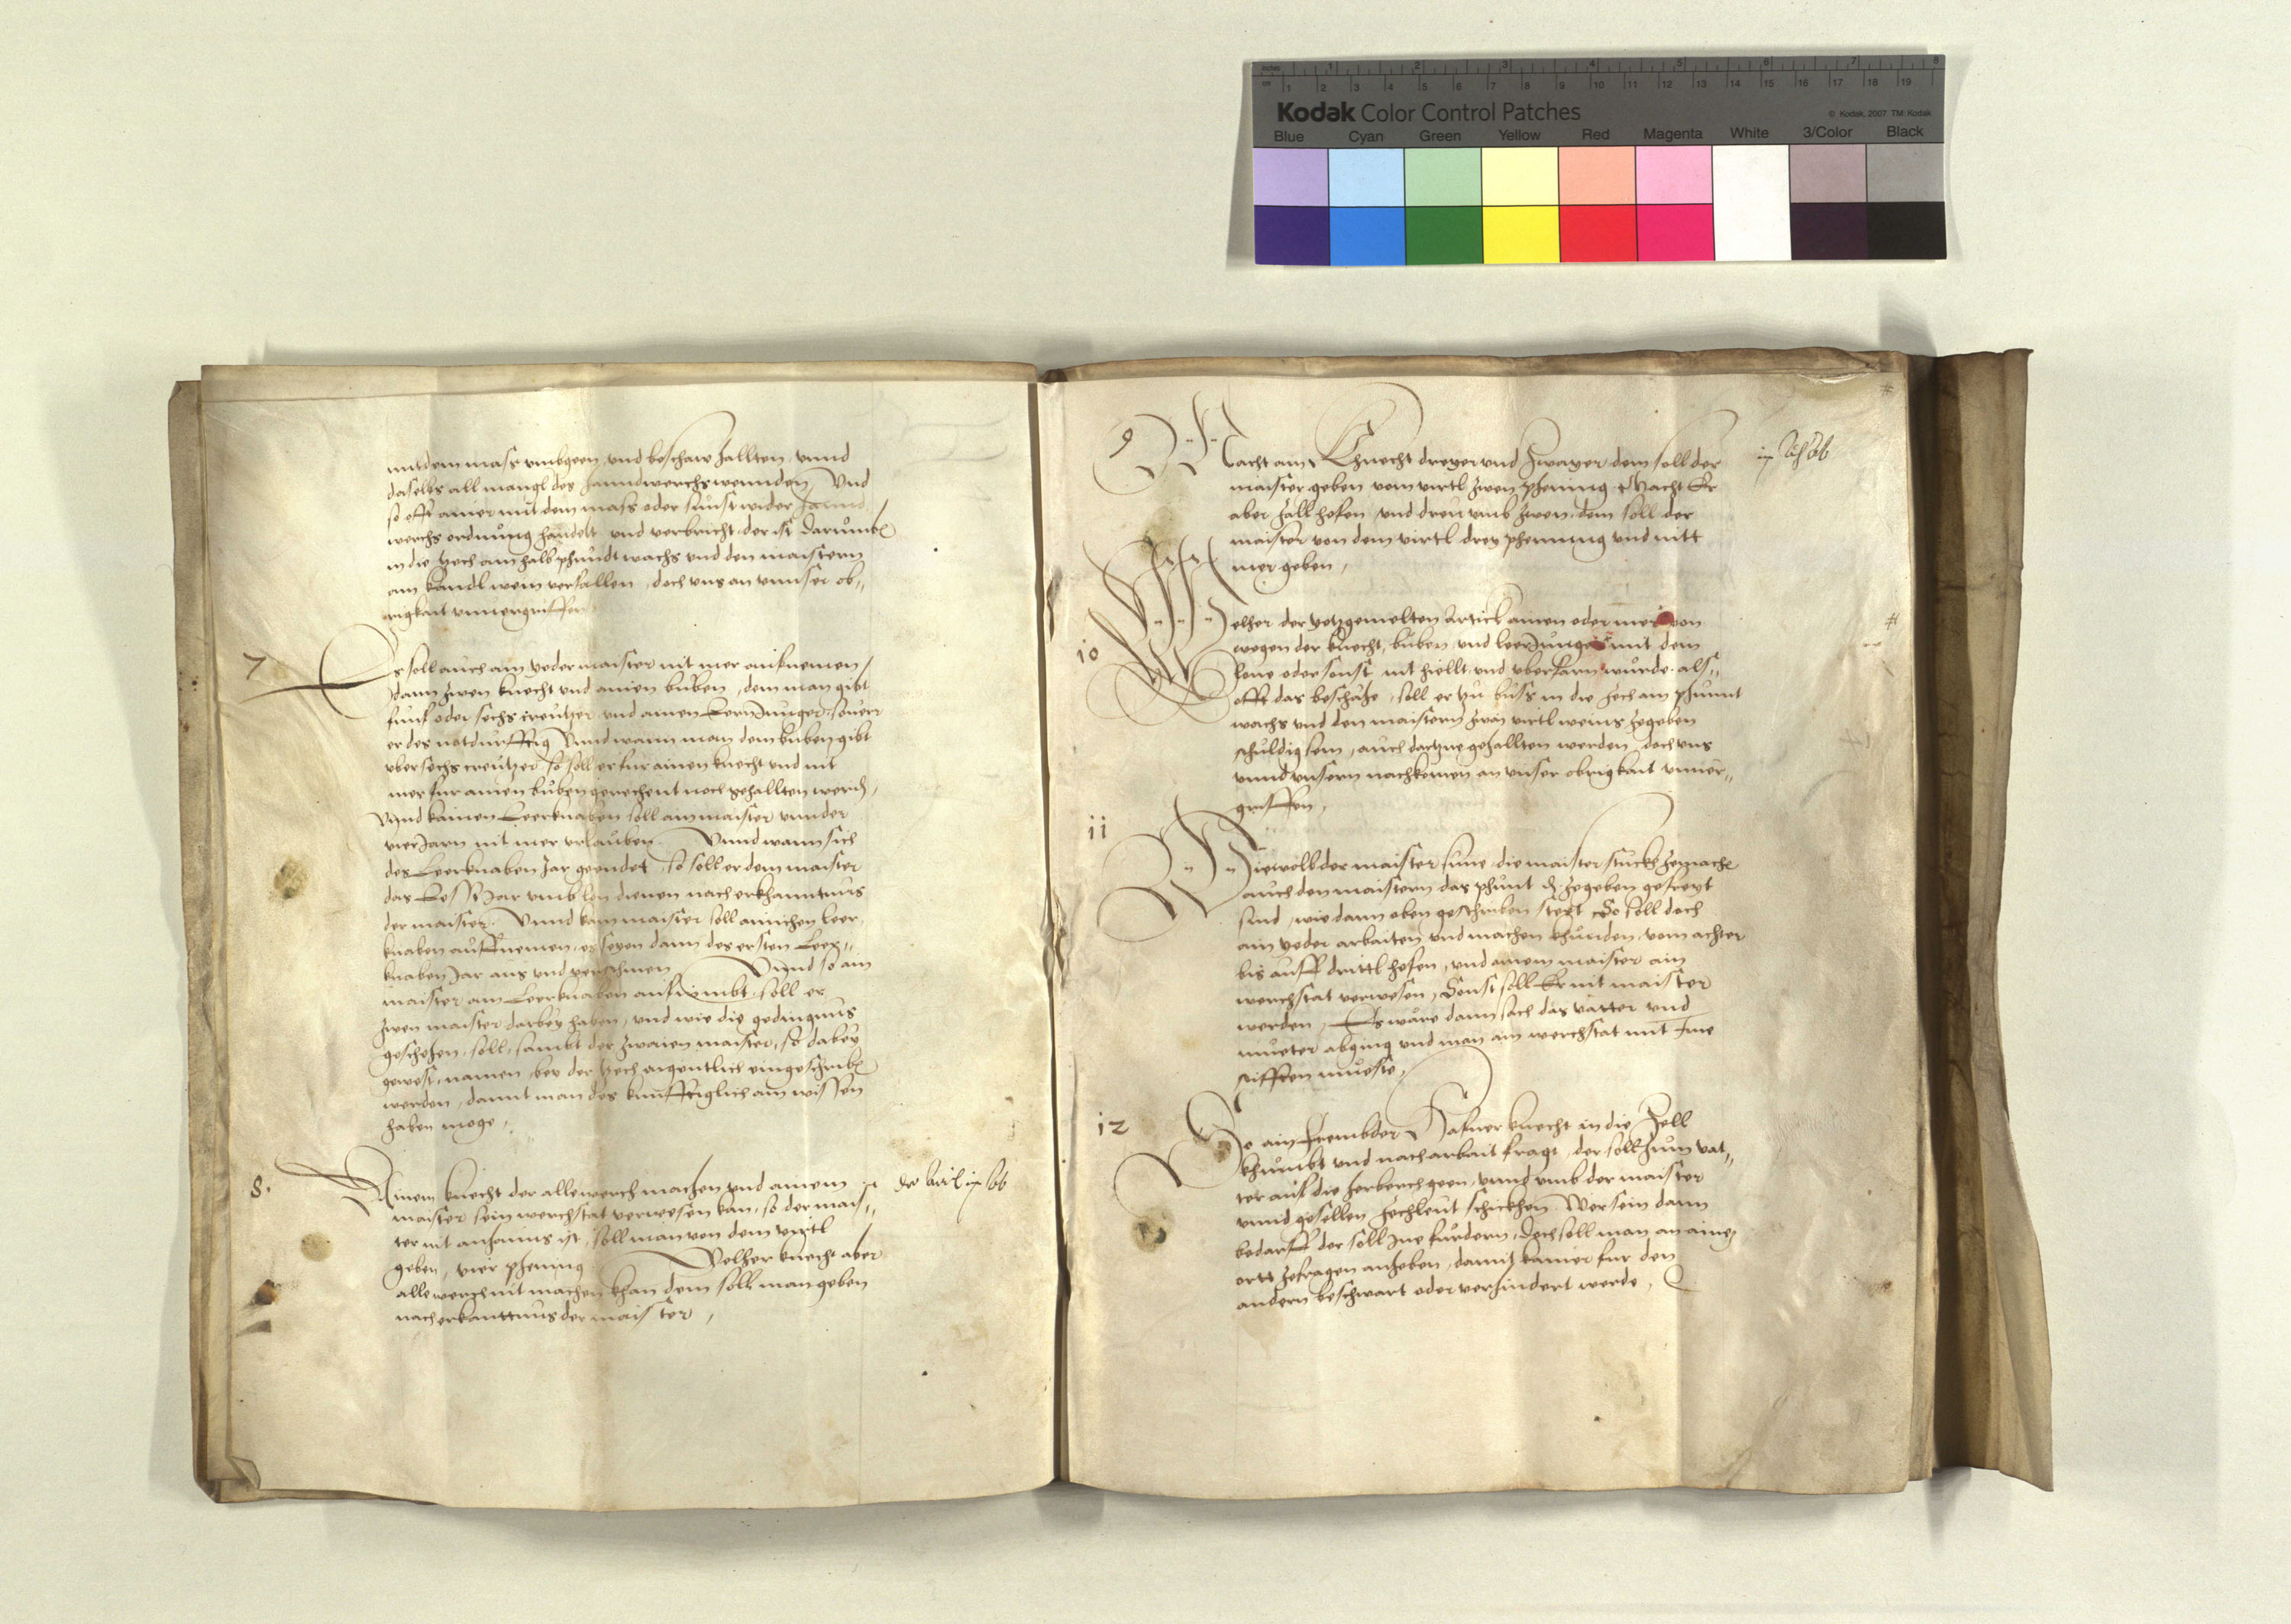 inches 1 2 3 4 5 6 7 8
cm 1 2 3 4 5 6 7 8 9 10 11 12 13 14 15 16 17 18 19
Kodak Color Control Patches © Kodak, 2007 TM: Kodak
Blue Cyan Green Yellow Red Magenta White 3/Color Black
mit dem mass umbgeen und beschaw hallten, unnd
daselbs all mangl des hanndwerchs wennden, Und
so offt ainer mit dem mass oder sunst wider hannd
werchs ordnung handelt und verbricht, der ist darumb
in die Zech ain halb phundt wachs und den maistern
ain kandl wein verfallen, doch uns an unnser ob„
rigkait unvergriffen
7
Es soll auch ain yeder maister nit mer aufnemen
dann zwen knecht und ainen buben, dem man gibt
funf oder sechs creutzer und ainen Lernjunger, sover
er des notdurfftig Unnd wann man dem buben gibt
uber sechs creutzer so soll er fur ainen knecht und nit
mer fur ainen buben gerechent noch gehallten werd,
Unnd kainen Leerknaben soll ain maister unnder
vier Jarn nit mer erlauben. Unnd wann sich
des Leerknaben Jar geendet, so soll er dem maister
das Lesst Jar umb lon dienen nach erkhanntnus
der maister. Unnd kain maister soll ainichen leer
knaben auffnemen, es seyen dann des ersten Leer„
knaben Jar aus und verschinen Unnd so ain
maister ain Leerknaben aufnimbt, soll er
zwen maister darbey haben, und wie die gedingnus
geschehen, soll, sambt der zwaien maister, so dabey
gewest, namen, bey der Zech aigentlich eingeschribe
werden, damit man des kunfftiglich ain wissen
haben moge,
8.
Ainem knecht der alle werch machen und ainem
maister sein werchstat verwesen kan, so der mais„
ter nit anhaims ist, soll man von dem virtl
geben, vier phening Welher knecht aber
alle werch nit machen khan dem soll man geben
nach erkanttnus der maister,
9
Macht ain Khnecht dreyer und zwayer dem soll der
maister geben vom virtl zwen phening, Macht Er
aber hallb hefen und drey umb zwen, dem soll der
maister von dem virtl drey phenning und nitt
mer geben,
10
Welher der yetzgemelten Articl ainen oder mer von
wegen der knecht, buben und Leerjunger mit dem
lone oder sonst nit hiellt und uberfarn wurde, als„
offt das beschahe, soll er zu buss in die Zech ain phunnt
wachs und den maistern zwai virtl weins zegeben
schuldig sein, auch dartzue gehallten werden doch uns
unnd unsern nachkomen an unser obrigkait unver„
griffen,
11
Wiewoll der maister sune die maisterstuckh zemache
auch den maistern das phunt d. zegeben gefreyt
sind, wie dann oben geschriben stett So soll doch
ain yeder arbaiten und machen khunden, vom achter
bis auff drittl hefen, und ainem maister ain
werchstat verwesen, Sonst soll Er nit maister
werden, Es wäre dann sach das vatter und
mueter abging und man ain werchstat mit Ime
stifften mueste,
12
So ain frembder Hafner knecht in die Zell
khumbt und nach arbait fragt, der soll zum vat„
ter auf die herberch geen, unnd umb der maister
unnd gesellen Zechleut schickhen. Wer sein dann
bedarff der soll Ine furdern, Doch soll man an aine
ortt zefragen anheben, damit kainer fur den
andern beschwart oder verhindert werde,